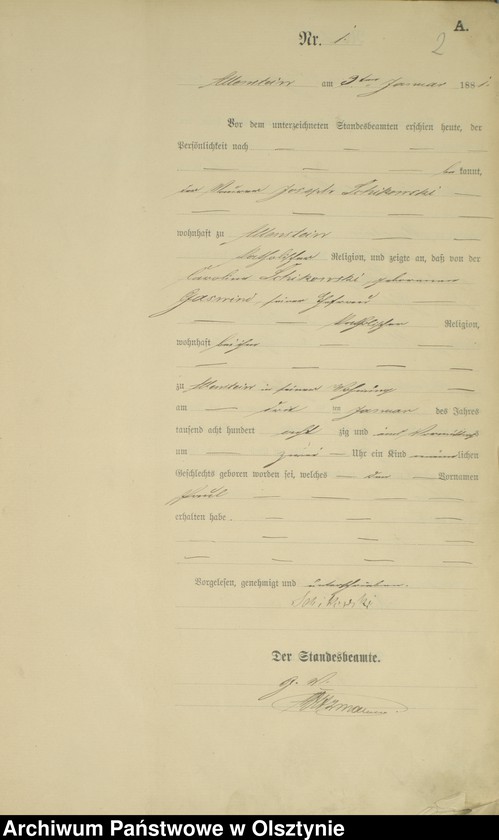 A.
Nr. 1.
2
Allenstein am 3ten Januar 1881.
Vor dem unterzeichneten Standesbeamten erschien heute, der
Persönlichkeit nach
be kannt,
der Maurer Joseph Schikowski
wohnhaft zu Allenstein
katholischer Religion, und zeigte an, daß von der
Caroline Schikowski geborenen
seiner Ehefrau
katholischer Religion,
wohnhaft bei ihm
zu Allenstein in seiner Wohnung
am drei ten Januar des Jahres
tausend acht hundert acht zig und eins Vormittags
um zwei Uhr ein Kind männlichen
Geschlechts geboren worden sei, welches den Vornamen
Paul
erhalten habe.
Vorgelesen, genehmigt und unterschrieben.
Schikowski
Der Standesbeamte.
Archiwum Państwowe w Olsztynie